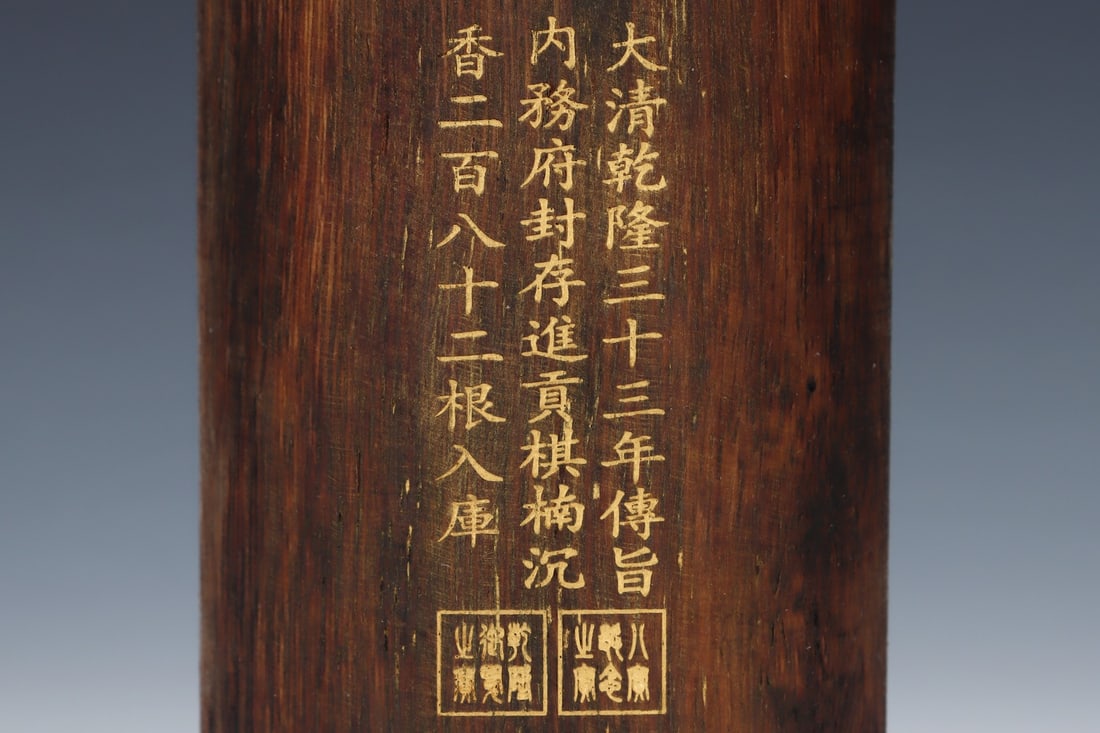 大清乾隆三十三年傳旨
内務府封存進貢棋楠沉
香二百八十二根入庫
乾隆御覽之寶